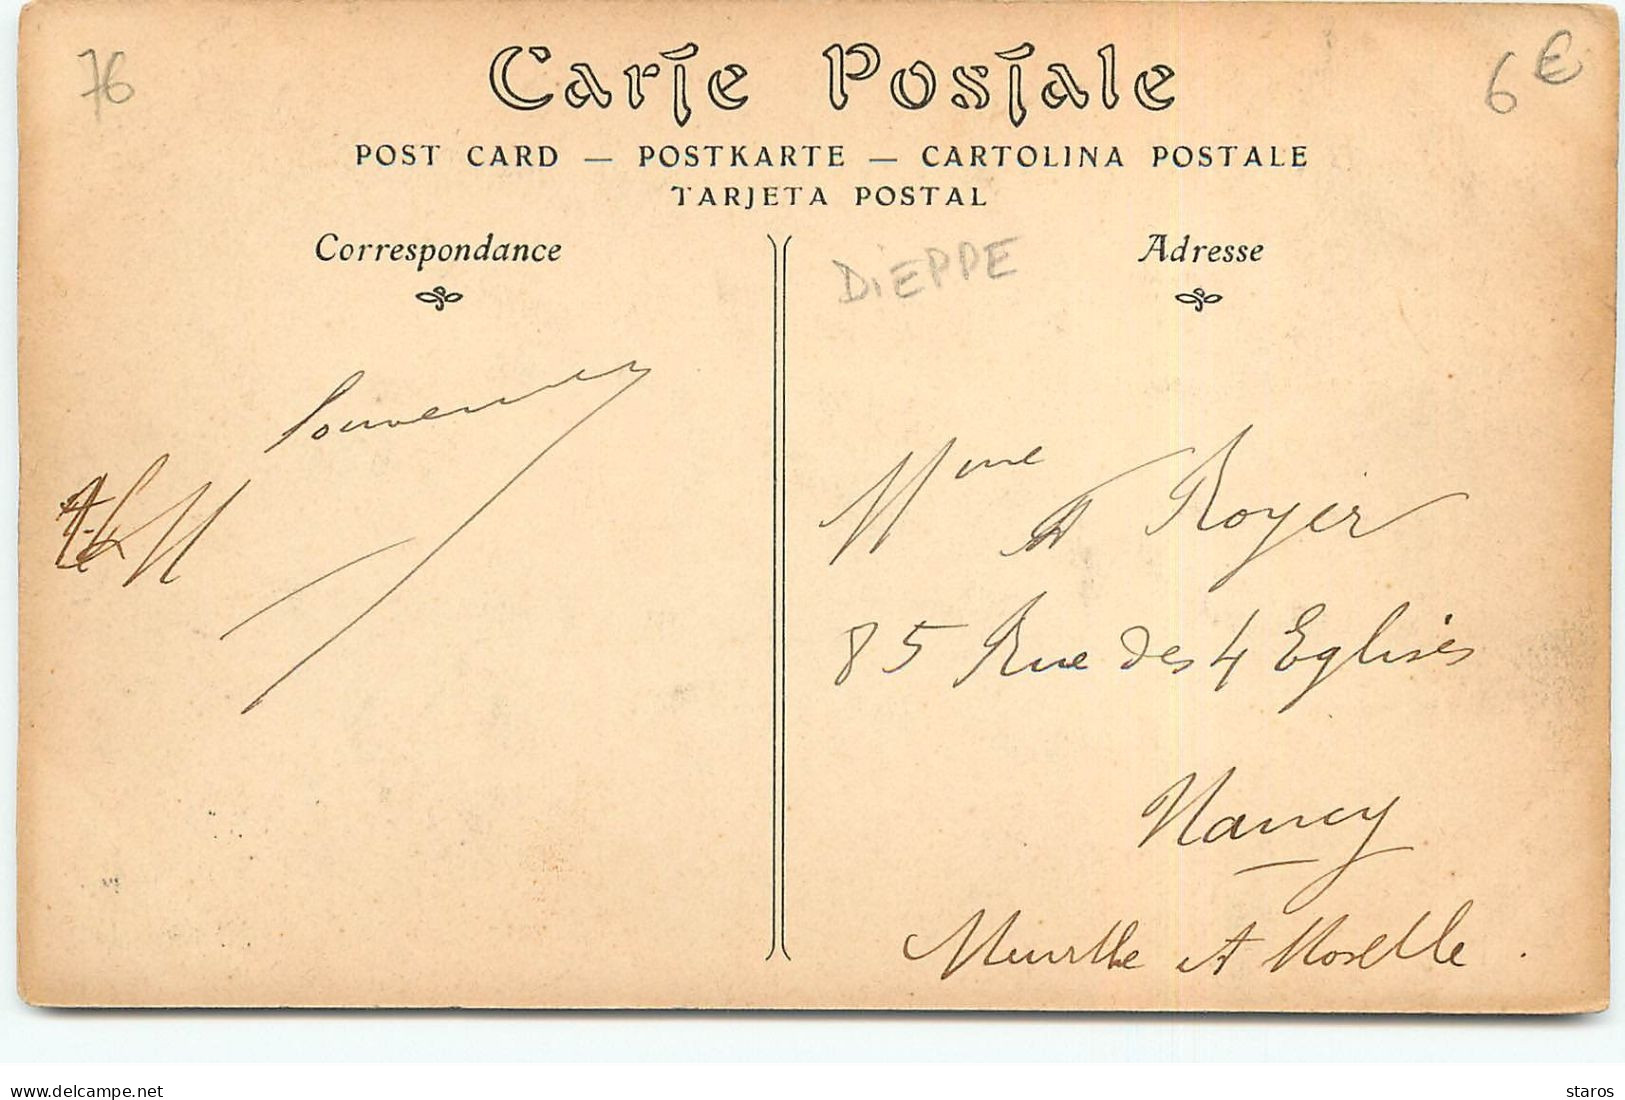 76
6 €
Carte Postale
POST CARD — POSTKARTE — CARTOLINA POSTALE
TARJETA POSTAL
Correspondance
DiEPPE
Adresse
Souvenir
Mme A Royer
85 Rue des 4 Eglises
Nancy
Meurthe et Moselle.
www.delcampe.net
staros